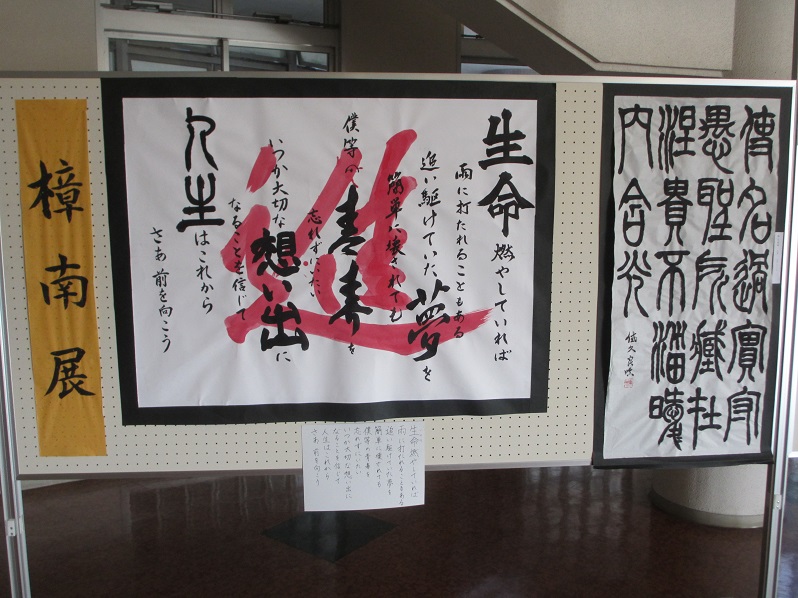 樟南展
進
生命燃やしていれば
雨に打たれることもある
追い駆けていた夢を
簡単に壊されても
僕等の青春を
忘れずにいたい
いつか大切な想い出に
なることを信じて
人生はこれから
さあ前を向こう
使名過實守
愚聖所臧在
涅貴不淄曖々
内含光
生命燃やしていれば
雨に打たれることもある
追い駆けていた夢を
簡単に壊されても
僕等の青春を
忘れずにいたい
いつか大切な想い出に
なることを信じて
人生はこれから
さあ前を向こう